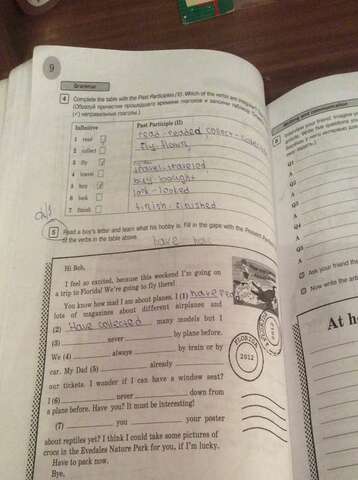 9
Grammar
4 Complete the table with the Past Participles (II). Which of the verbs are irregular?
(Образуй причастие прошедшего времени глаголов и заполни таблицу.
(✓) неправильные глаголы.)
Infinitive Past Participle (II)
1 read read - readed collect -
2 collect
3 fly fly - flown
4 travel travel - traveled
5 buy buy - bought
6 look look - looked
7 finish finish - finished
5 Read a boy's letter and learn what his hobby is. Fill in the gaps with the Present Perfect
of the verbs in the table above.
have
Hi Bob,
I feel so excited, because this weekend I'm going on
a trip to Florida! We're going to fly there!
You know how mad I am about planes. I (1) have
lots of magazines about different airplanes and
(2) Have collected many models but I
(3) never by plane before.
We (4) always by train or by
car. My Dad (5) already
our tickets. I wonder if I can have a window seat?
I (6) never down from
a plane before. Have you? It must be interesting!
(7) you your poster
about reptiles yet? I think I could take some pictures of
crocs in the Evedales Nature Park for you, if I'm lucky.
Have to pack now.
Bye,
FLORIDA
2012
Writing and
5 Interview your friend.
Q1
A
Q2
A
Q3
A
Q4
A
Q5
A
Ask your friend
Now write the
At h